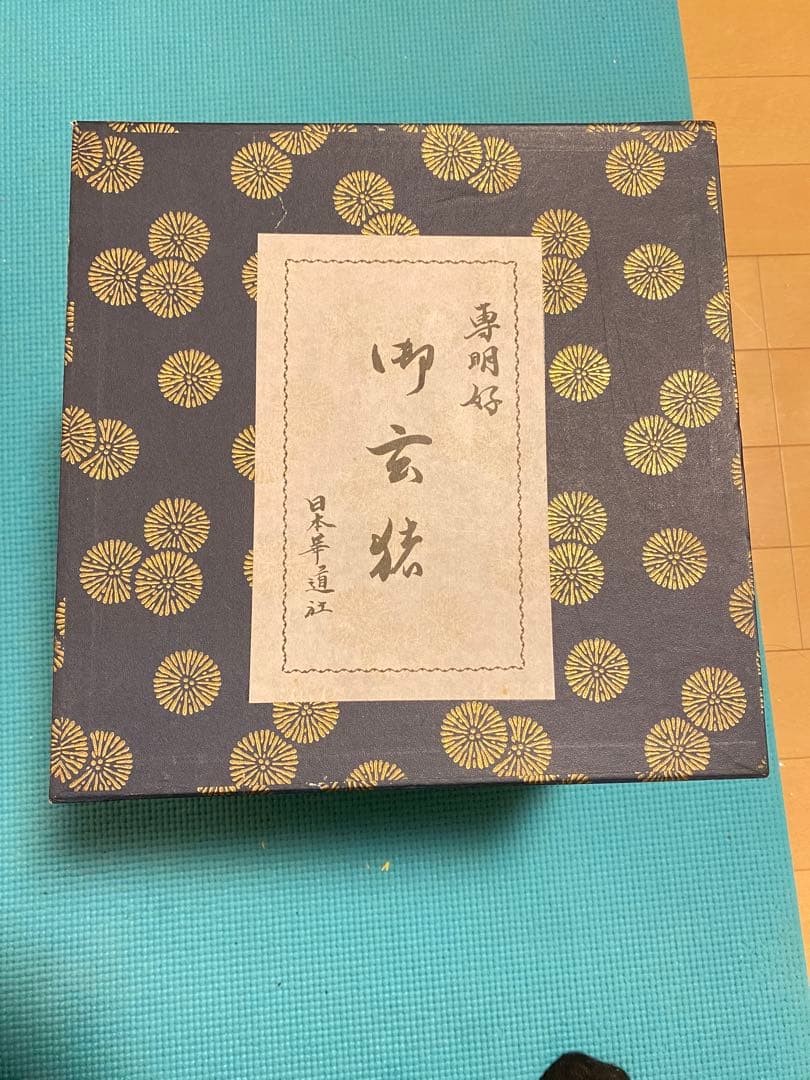 専明好
御玄猪
日本華道社